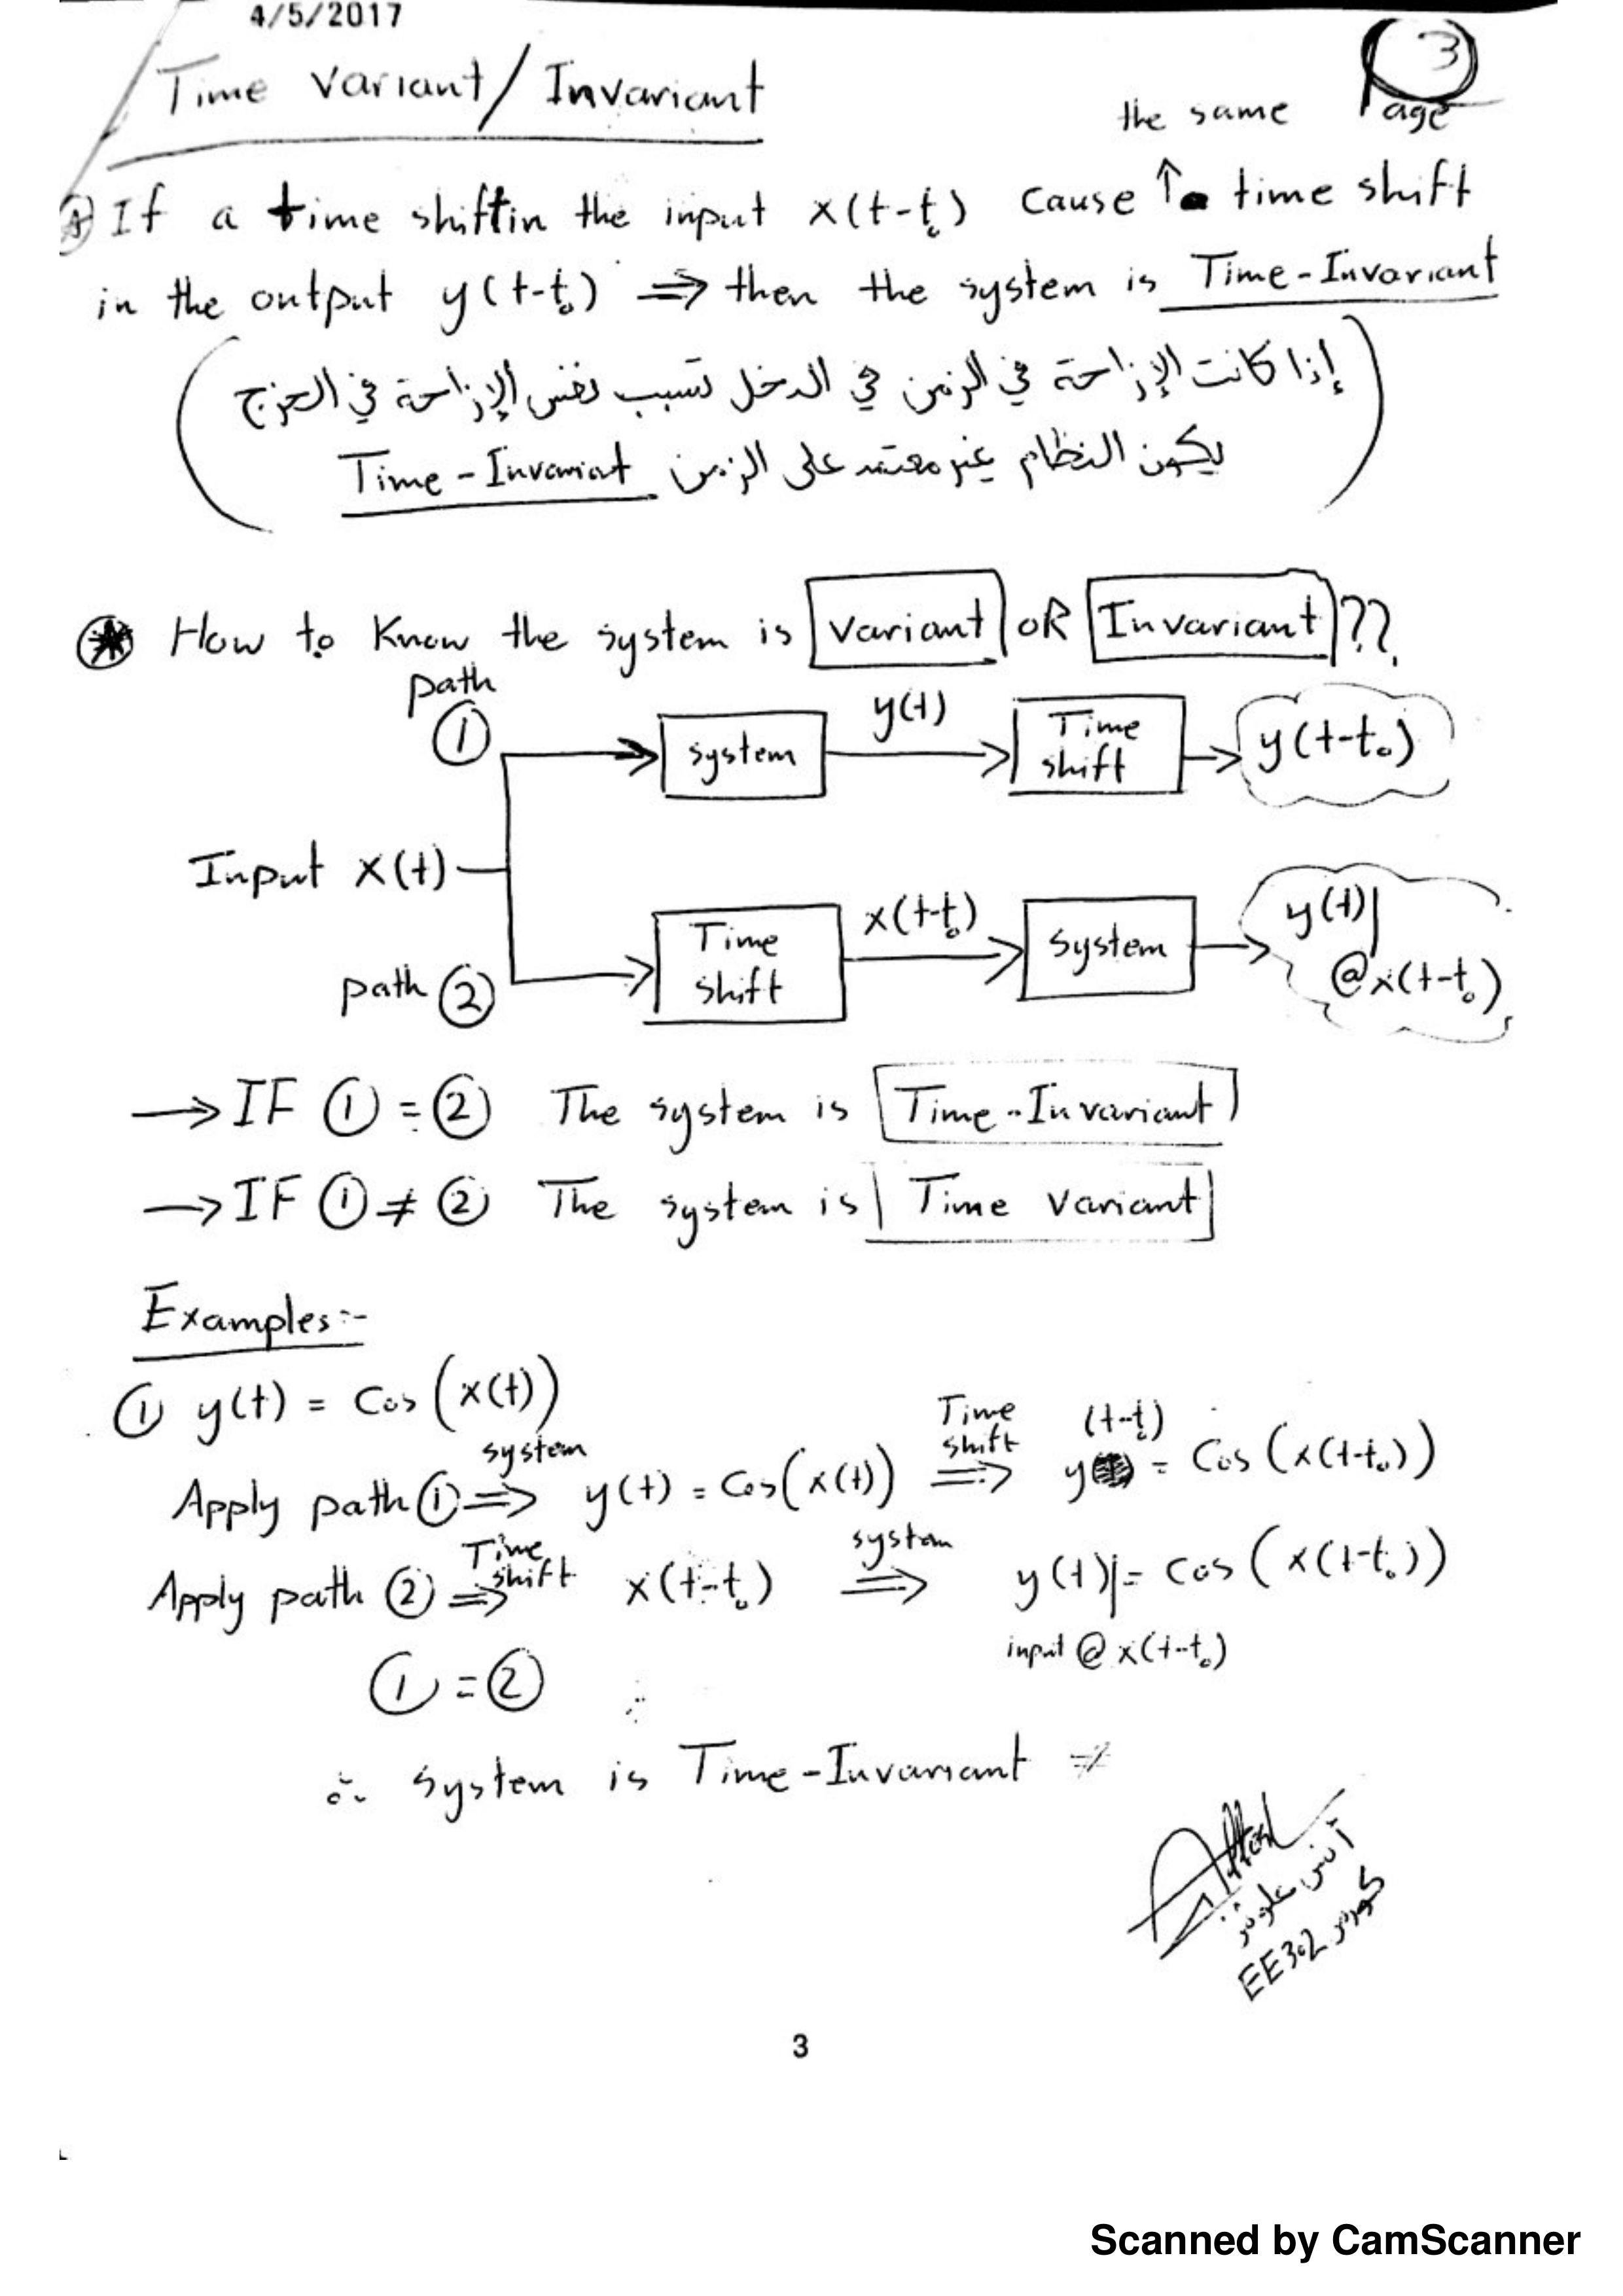 4/5/2017
Time Variant/Invariant
3
Page
the same
If a time shift in the input x(t-t₀) cause ↑ time shift
in the output y(t-t₀) ⇒ then the system is Time-Invariant
إذا كانت الإزاحة في الزمن في الدخل تسبب نفس الإزاحة في الخرج
يكون النظام غير معتمد على الزمن Time-Invariat
How to Know the system is Variant OR Invariant ??
path
① system y(t) Time shift y(t-t₀)
Input x(t)
path ② Time shift x(t-t₀) system y(t)|
@x(t-t₀)
→ IF ① = ② The system is Time-Invariant
→ IF ① ≠ ② The system is Time Variant
Examples:-
① y(t) = Cos (x(t))
Apply path ① system ⇒ y(t) = Cos(x(t)) Time shift ⇒ y(t-t₀) = Cos (x(t-t₀))
Apply path ② Time shift ⇒ x(t-t₀) system ⇒ y(t)| = cos (x(t-t₀))
input @ x(t-t₀)
① = ②
∴ system is Time-Invariant
EE302
3
Scanned by CamScanner